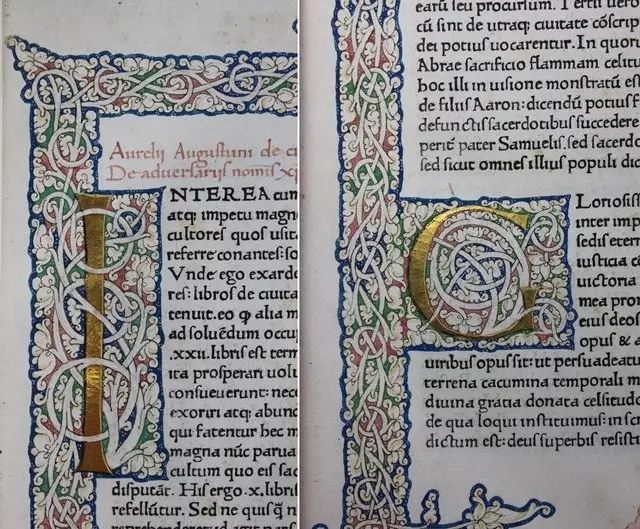 Aurelij Augustini de ci
De aduersarijs nominis xp̄i
INTEREA cum
atq; impetu magn
cultores quos usita
referre conantes: so
Vnde ego exarde
res: libros de ciuita
tenuit. eo ꝙ alia m
ad soluēdum occu
.xxii. libris est term
ita prosperari uolu
consueuerunt: nec
exoriri atq; abund
qui fatentur hec m
magna nūc parua
cultum quo eis sac
disputāt. His ergo .x. libris
refellūtur. Sed ne quisq̄ n
reprehenderet ad agit parsi
earū seu procursum. Tertii uero
cū sint de utraq; ciuitate cōscrip
dei potius uocarentur. In quoru
Abrae sacrificio flammam celitu
hoc illi in uisione monstratū est
de filiis Aaron: dicendū potius f
defunctis sacerdotibus succedere
perie pater Samuelis: sed sacerdo
sed sicut omnes illius populi dic
GLoriosiss
inter imp
sedis etern
iusticia cō
uictoria
mea pro
eius deos
opus & a
uiribus opus sit: ut persuadeatu
terrena cacumina temporali m
diuina gratia donata celsitudo
de qua loqui instituimus: in scr
dictum est: deus superbis resisti